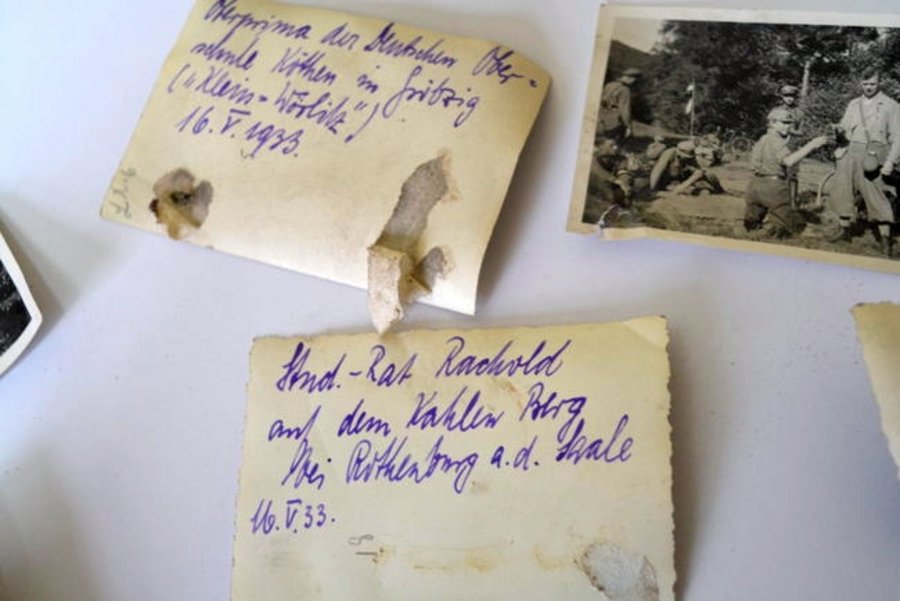 Oberprima der Deutschen Ober-
schule Köthen in Gröbzig
("Klein-Wörlitz")
16. V. 1933.
Stud.-Rat Rachold
auf dem Kahlen Berg
bei Rothenburg a.d. Saale
16. V. 33.